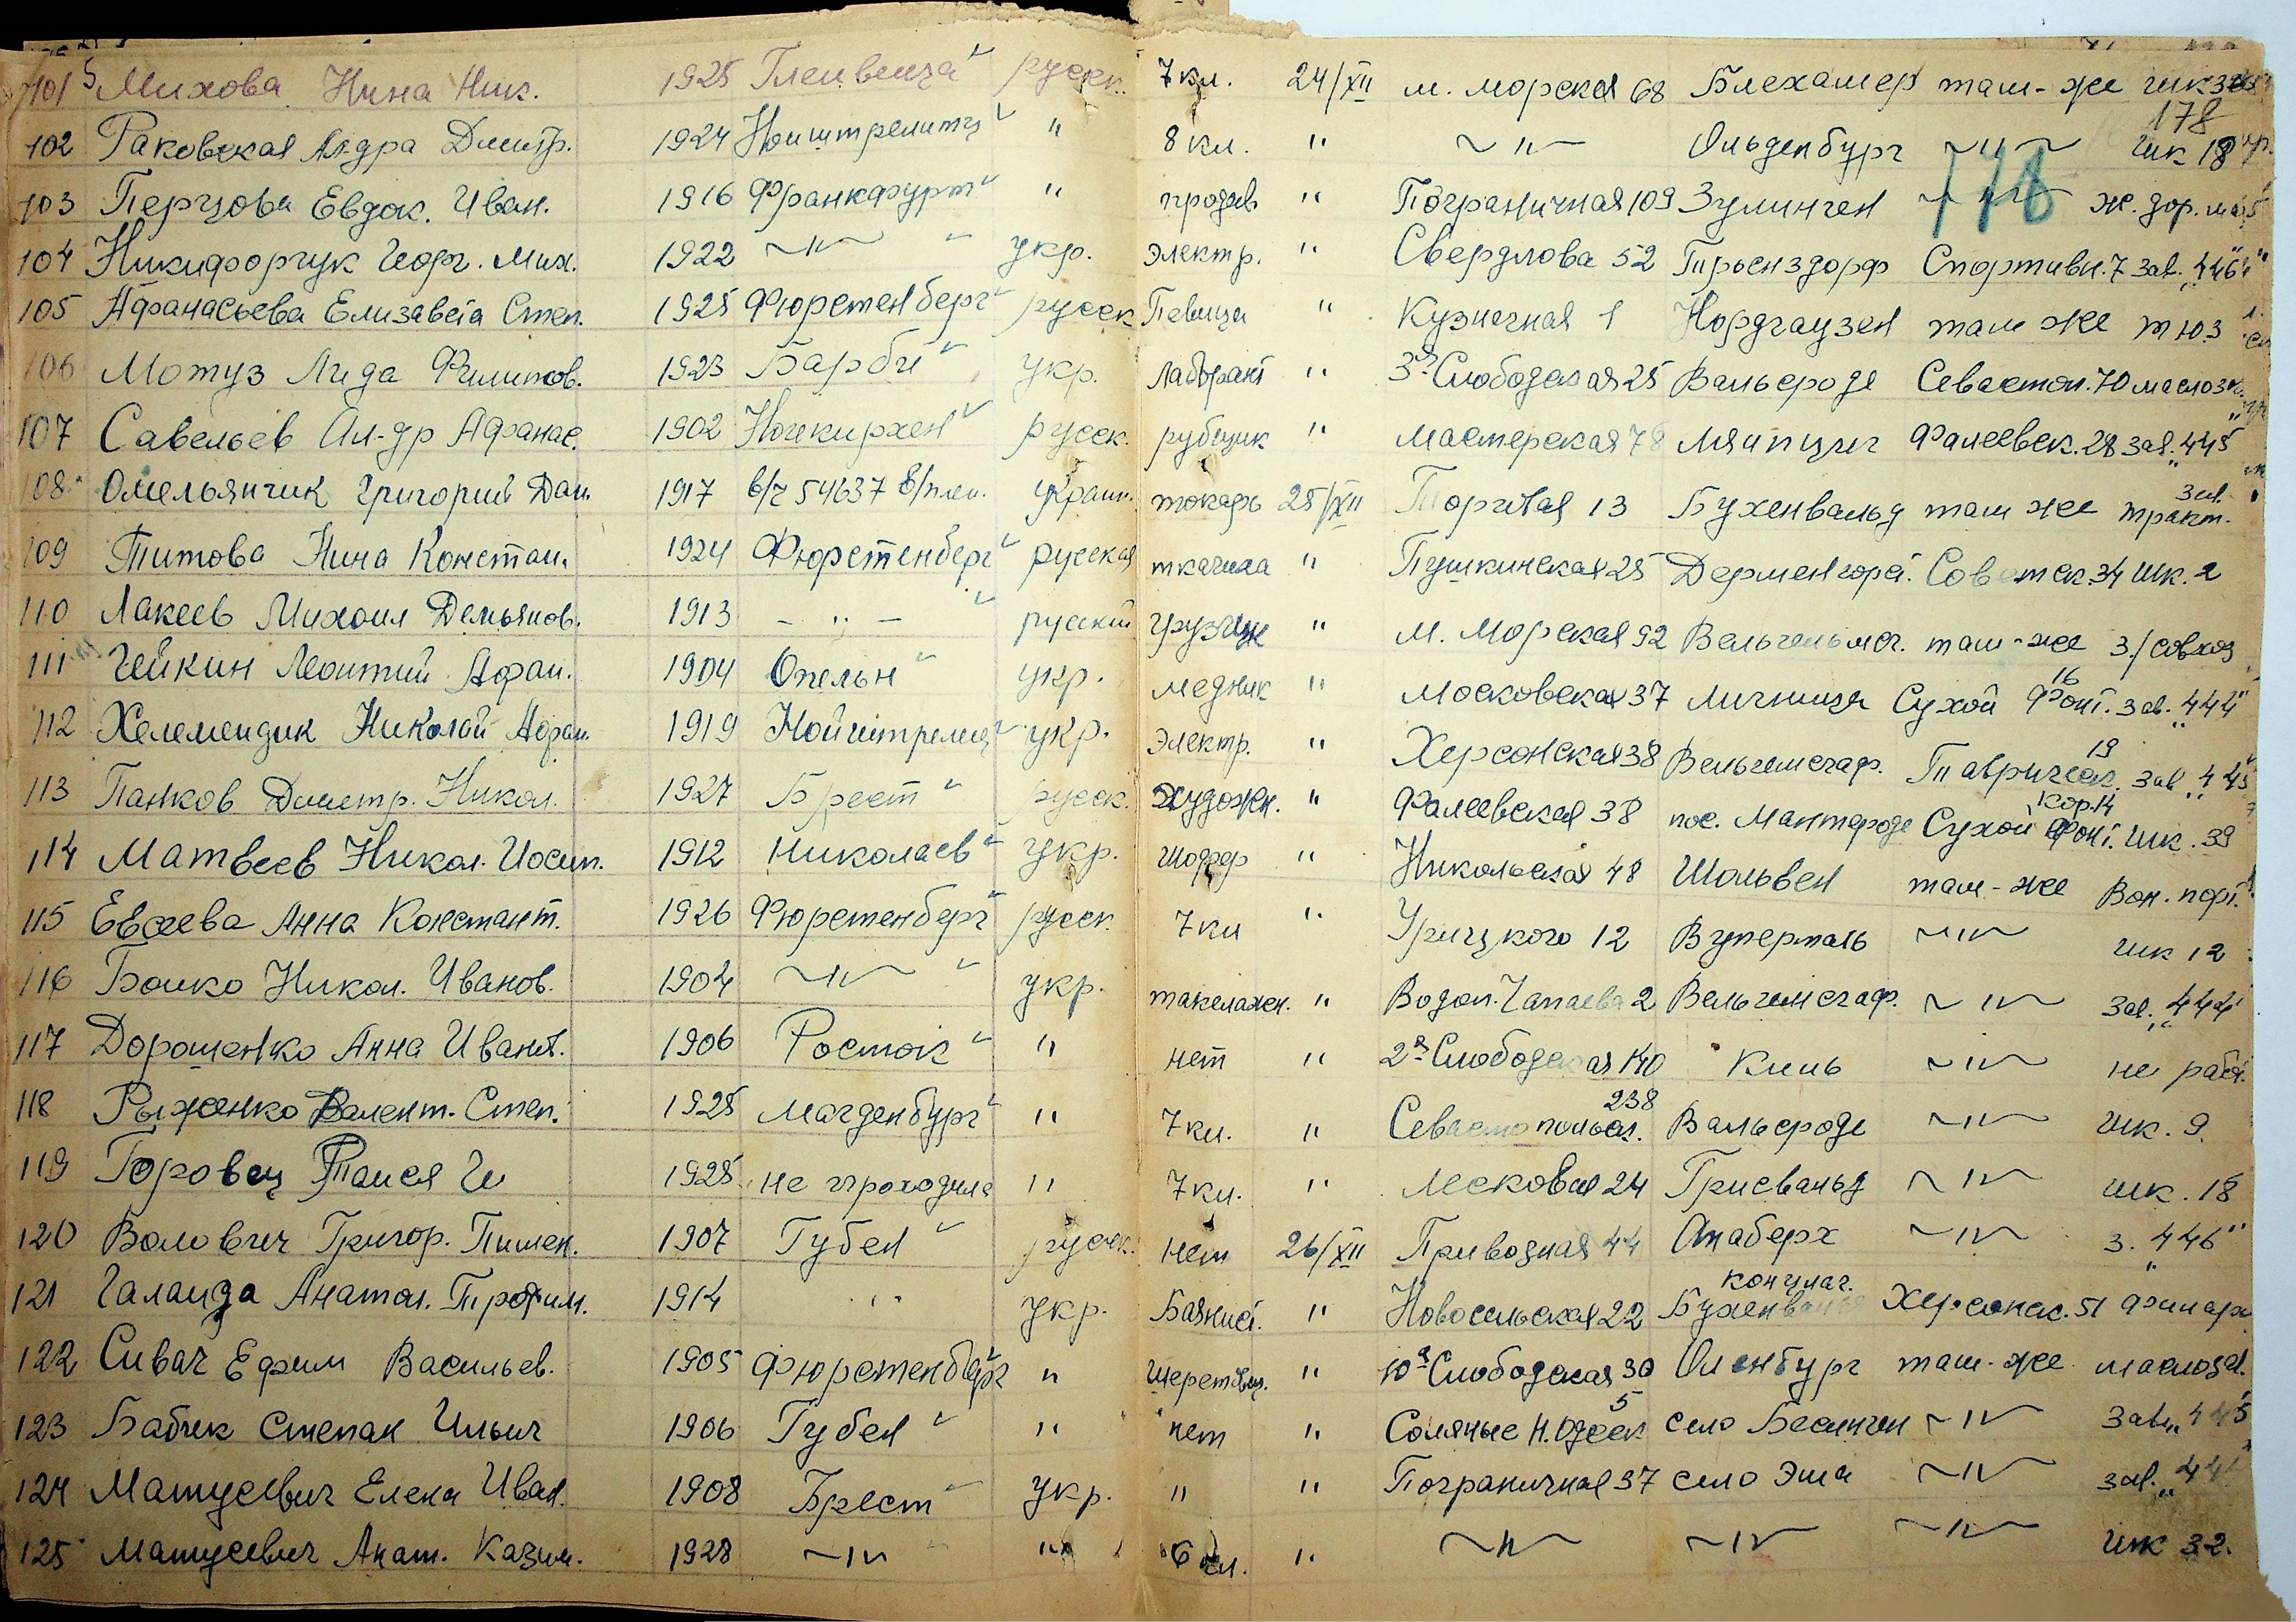 101 Михова Нина Ник. 1925 Глейвец русск. 7 кл. 24/XII м. морская 68 Блехамер там-же
178
102 Раковская Ал-дра Дмитр. 1924 Ноиштрелитц " 8 кл. " ~"~ Ольденбург ~"~ шк 18
103 Перцова Евдок. Иван. 1916 Франкфурт " продав " Пограничная 109 Зулинген ~"~ ж. дор.
178
104 Никифорчук Георг. Мих. 1922 ~"~ укр. электр. " Свердлова 52 Трьенздорф Спортивн. 7 зав. „446"
105 Афанасьева Елизавета Степ. 1925 Фюрстенберг русск Певица " Кузнечная 1 Нордгаузен там же тюз
106 Мотуз Лида Филипов. 1923 Барби укр. лаборант " 3я Слободская 25 Вальсроде Севастоп. 70 маслоз
107 Савельев Ал-др Афанас. 1902 Нойкирхен русск. рубщик " мастерская 78 Ляйпциг Фалеевск. 28 зав. „445"
108 Омельянчик Григорий Дан. 1917 в/ч 54637 в/плен. украин. токарь 25/XII Торговая 13 Бухенвальд там же зав. тракт.
109 Титова Нина Констан. 1924 Фюрстенберг русская ткачиха " Пушкинская 25 Советск. 34 шк. 2
110 Лакеев Михаил Демьянов. 1913 - " - русский грузчик " М. Морская 92 там-же з/совхоз
111 Чейкин Леонтий Афан. 1904 Опельн укр. медник " Московская 37 Сухой Фонт. 16 зав. „444"
112 Хелемендик Николай Афан. 1919 Нойштрелиц укр. электр. " Херсонская 38 Вельгемсгаф. Таврическ. 19 зав „445"
113 Панков Дмитр. Никол. 1927 Брест русск. художн. " Фалеевская 38 пос. Мантероде Сухой Фонт. кор. 14 шк. 39
114 Матвеев Никол. Иосип. 1912 Николаев укр. шофер " Никольская 48 Шольвен там-же Вон. порт.
115 Евсеева Анна Констант. 1926 Фюрстенберг русск. 7 кл " Урицкого 12 Вуперталь ~"~ шк 12
116 Бойко Никол. Иванов. 1904 ~"~ укр. такелажн. " Водоп. Чапаева 2 Вельгемсгаф. ~"~ зав. „444"
117 Дорошенко Анна Иван. 1906 Росток " нет " 2я Слободская 140 Киль ~"~ не работ.
118 Рыженко Валент. Степ. 1925 Магденбург " 7 кл. " Севастопольск. 238 Вальсроде ~"~ шк. 9.
119 Горовец Таися И 1925 не проходила " 7 кл. " Лесковая 24 Грисвальд ~"~ шк. 18
120 Волович Григор. Пимен. 1907 Губен русск. нет 26/XII Привозная 44 Анаберх ~"~ з. „446"
121 Галайда Анатол. Трофим. 1914 " укр. Баянист. " Новосельская 22 концлаг. Бухенвальд Херсонск. 51
122 Сивач Ефим Васильев. 1905 Фюрстенберг " " 10я Слободская 30 Оленбург там-же маслозав.
123 Бабчек Степан Ильич 1906 Губен " нет " Соляные Н. Одесск 5 село Бесинген ~"~ зав. „445"
124 Матусевич Елена Иван. 1908 Брест укр. " " Пограничная 37 село Эша ~"~ зав. „44
125 Матусевич Анат. Казим. 1928 ~"~ " 6 кл. " ~"~ ~"~ ~"~ шк 32.